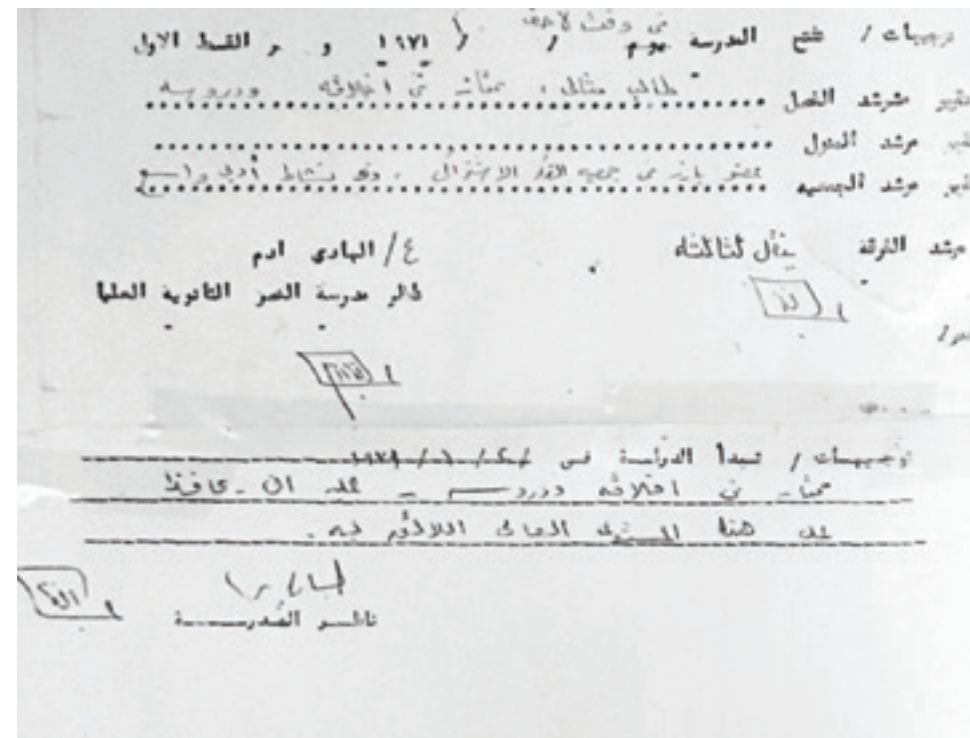 في وقت لاحق
توجيهات / تفتح المدرسة يوم / / ١٩٧١ و القسط الاول
تقرير مرشد الفصل طالب مثالى ممتاز في اخلاقه ودروسه
مرشد المنزل
مرشد الجمعيه عضو بارز في جمعيه الفكر الاشتراكي . وله نشاط أدبي واسع
مرشد الفرقة ينقل للثالثه
ع/ الهادى ادم
ناظر مدرسة الثانوية العليا
توجيهات / تبدأ الدراسة فى
ممتاز في اخلاقه ودروسه - عليه ان يحافظ
على هذا المستوى العالى اللائق به .
ناظر المدرسة